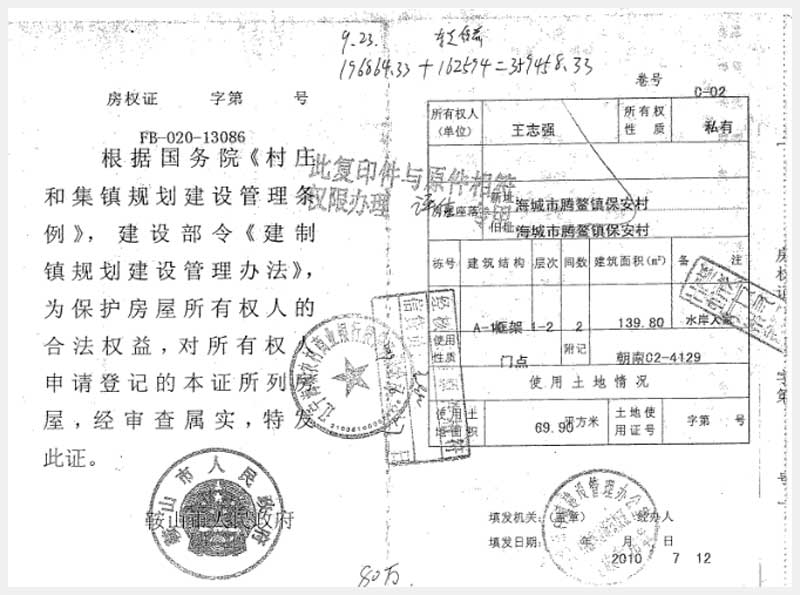 9.23.
196864.33 + 162594 = 359458.33
房权证 字第 号
FB-020-13086
根据国务院《村庄
和集镇规划建设管理条
例》，建设部令《建制
镇规划建设管理办法》，
为保护房屋所有权人的
合法权益，对所有权人
申请登记的本证所列房
屋，经审查属实，特发
此证。
鞍山市人民政府
鞍山市人民政府
此复印件与原件相符
权限办理
卷号
C-02
所有权人(单位) 王志强 所有权性质 私有
房屋座落 新址 海城市腾鳌镇保安村
旧址 海城市腾鳌镇保安村
栋号 建筑结构 层次 间数 建筑面积(m²) 备 注
A-10 框架 1-2 2 139.80 水岸人家
使用性质 门点 附记 朝南02-4129
使用土地情况
使用土地面积 69.90 平方米 土地使用证号 字第 号
填发机关：(盖章) 经办人
填发日期： 年 月 日
2010 7 12
80万
房权证
字第
号